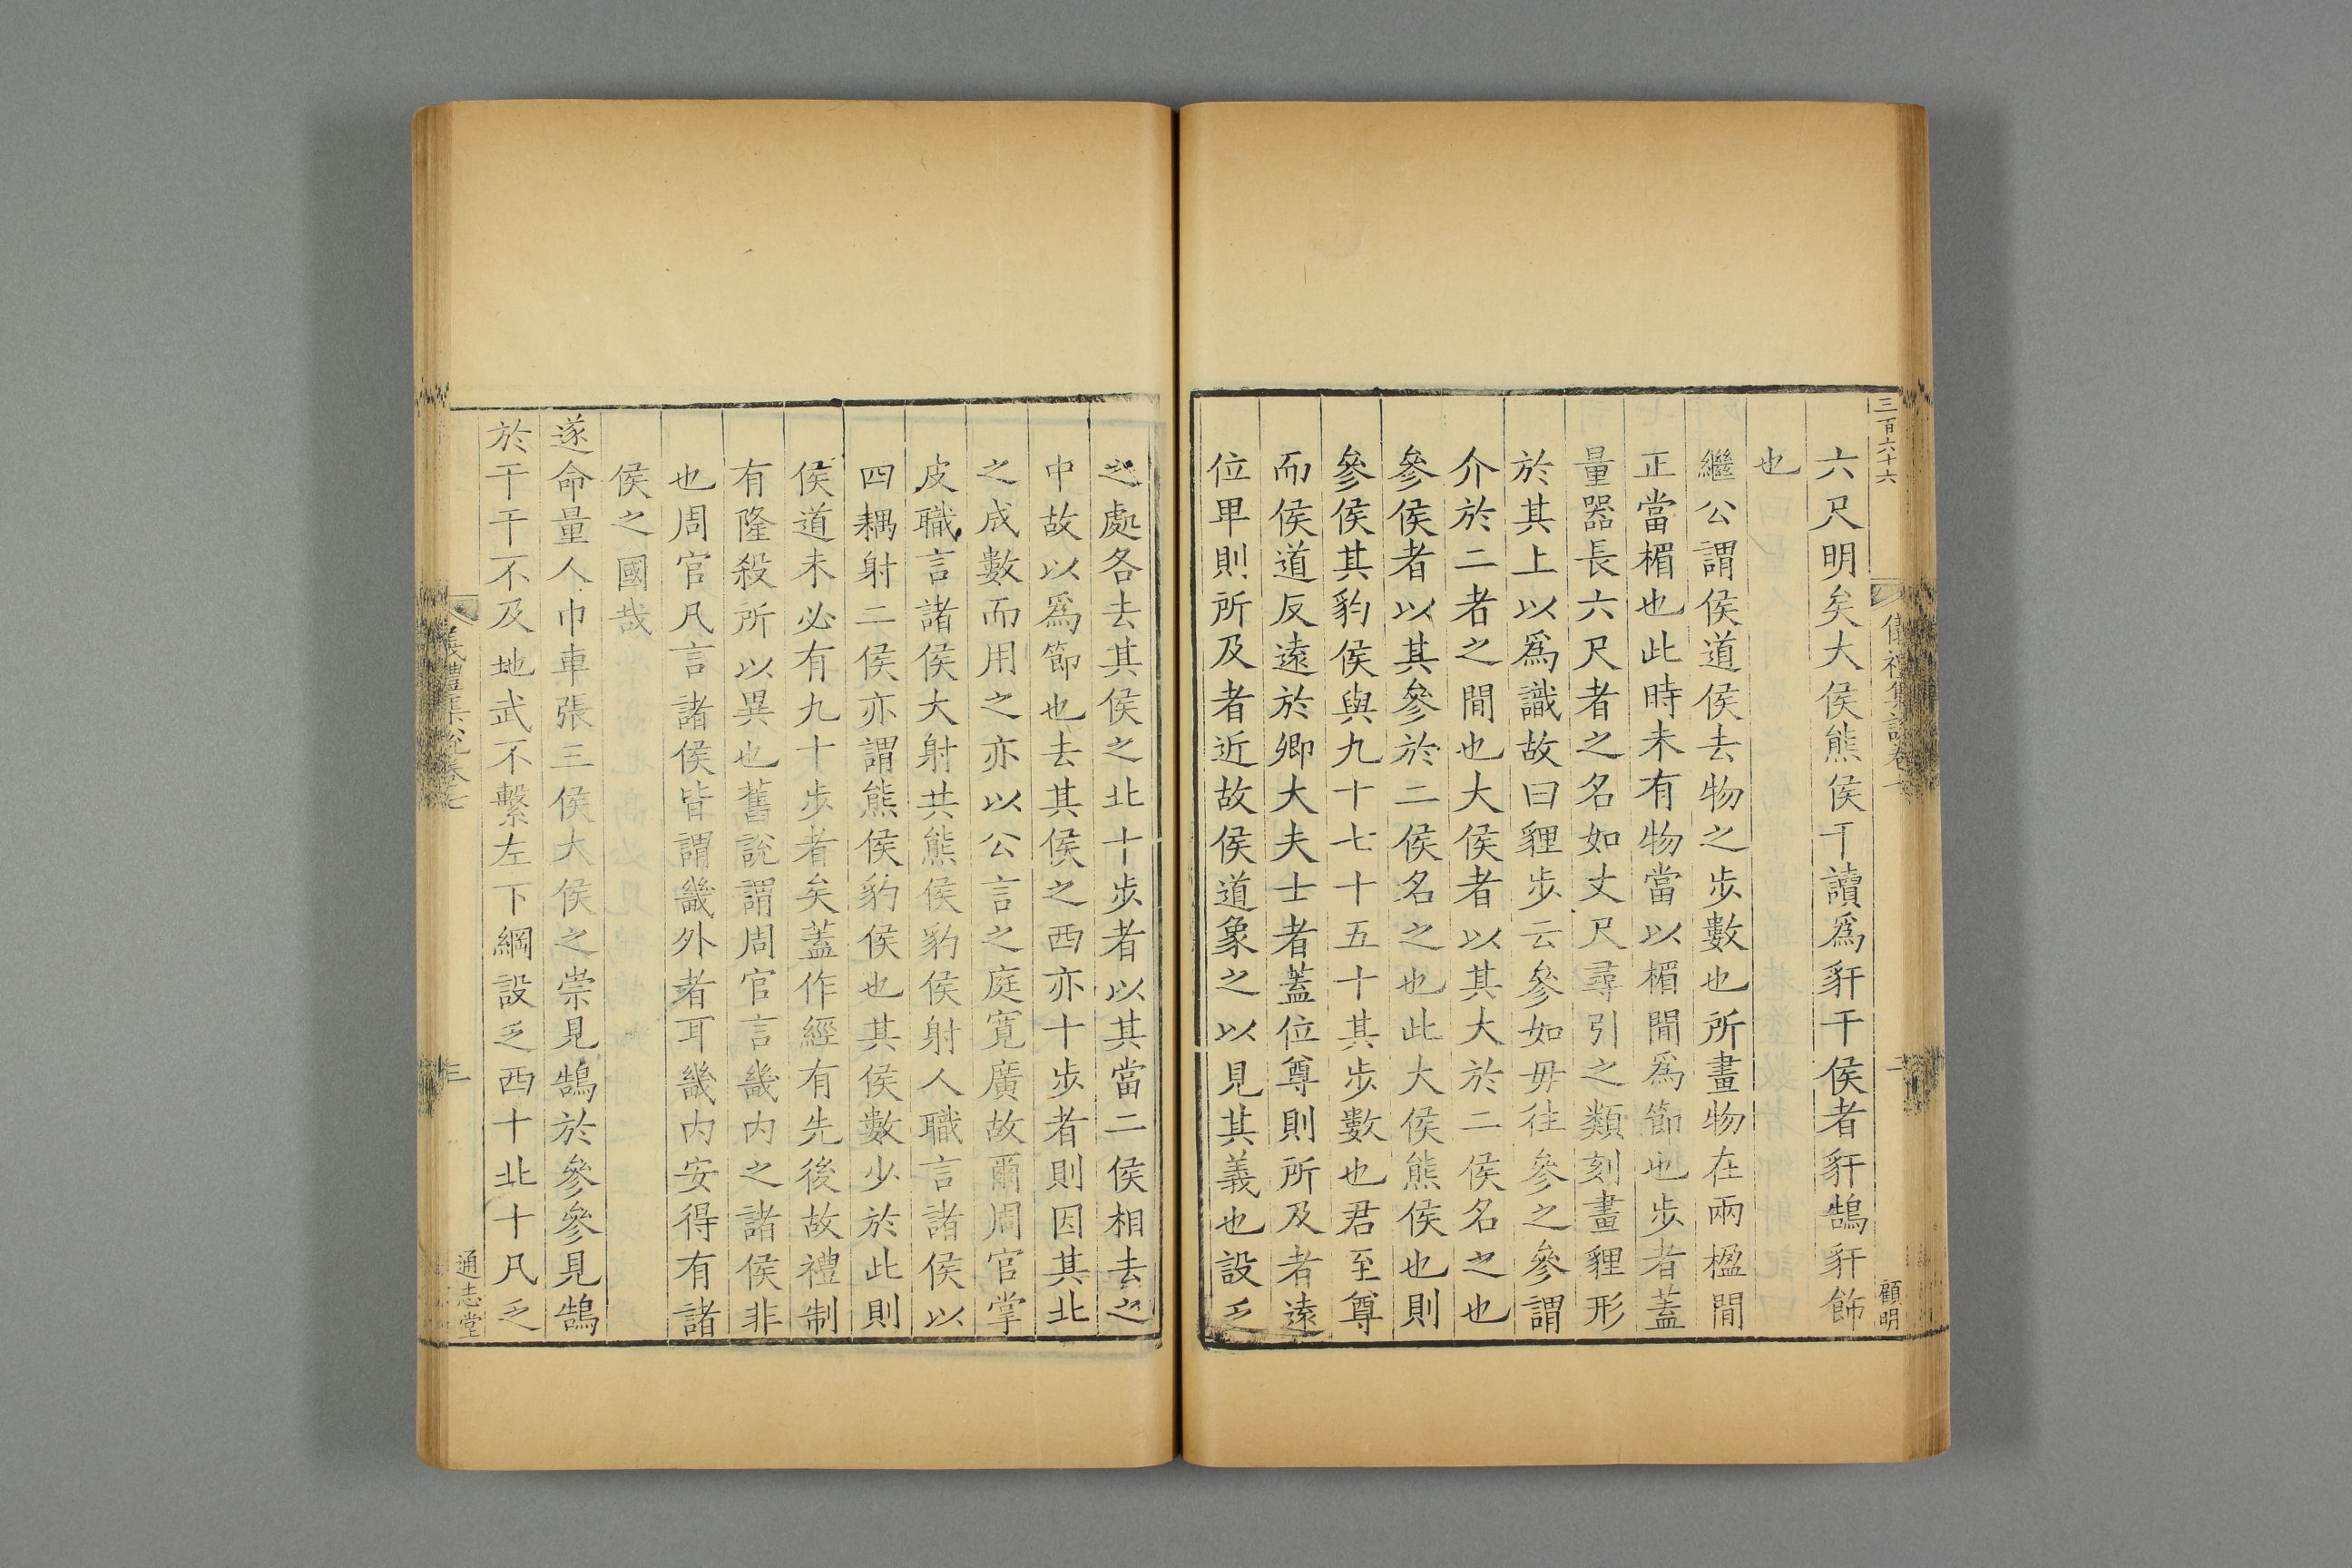 三百六十六
儀禮集說卷七
二
顧明
六尺明矣大侯熊侯干讀爲豻干侯者豻鵠豻飾
也
繼公謂侯道侯去物之步數也所畫物在兩楹閒
正當楣也此時未有物當以楣閒爲節也步者蓋
量器長六尺者之名如丈尺尋引之類刻畫貍形
於其上以爲識故曰貍步云參如毋往參之參謂
介於二者之閒也大侯者以其大於二侯名之也
參侯者以其參於二侯名之也此大侯熊侯也則
參侯其豹侯與九十七十五十其步數也君至尊
而侯道反遠於卿大夫士者蓋位尊則所及者遠
位卑則所及者近故侯道象之以見其義也設乏
之處各去其侯之北十步者以其當二侯相去之
中故以爲節也去其侯之西亦十步者則因其北
之成數而用之亦以公言之庭寬廣故爾周官掌
皮職言諸侯大射共熊侯豹侯射人職言諸侯以
四耦射二侯亦謂熊侯豹侯也其侯數少於此則
侯道未必有九十步者矣蓋作經有先後故禮制
有隆殺所以異也舊說謂周官言畿內之諸侯非
也周官凡言諸侯皆謂畿外者耳畿內安得有諸
侯之國哉
遂命量人巾車張三侯大侯之崇見鵠於參參見鵠
於干干不及地武不繫左下綱設乏西十北十凡乏
儀禮集說卷七
三
通志堂